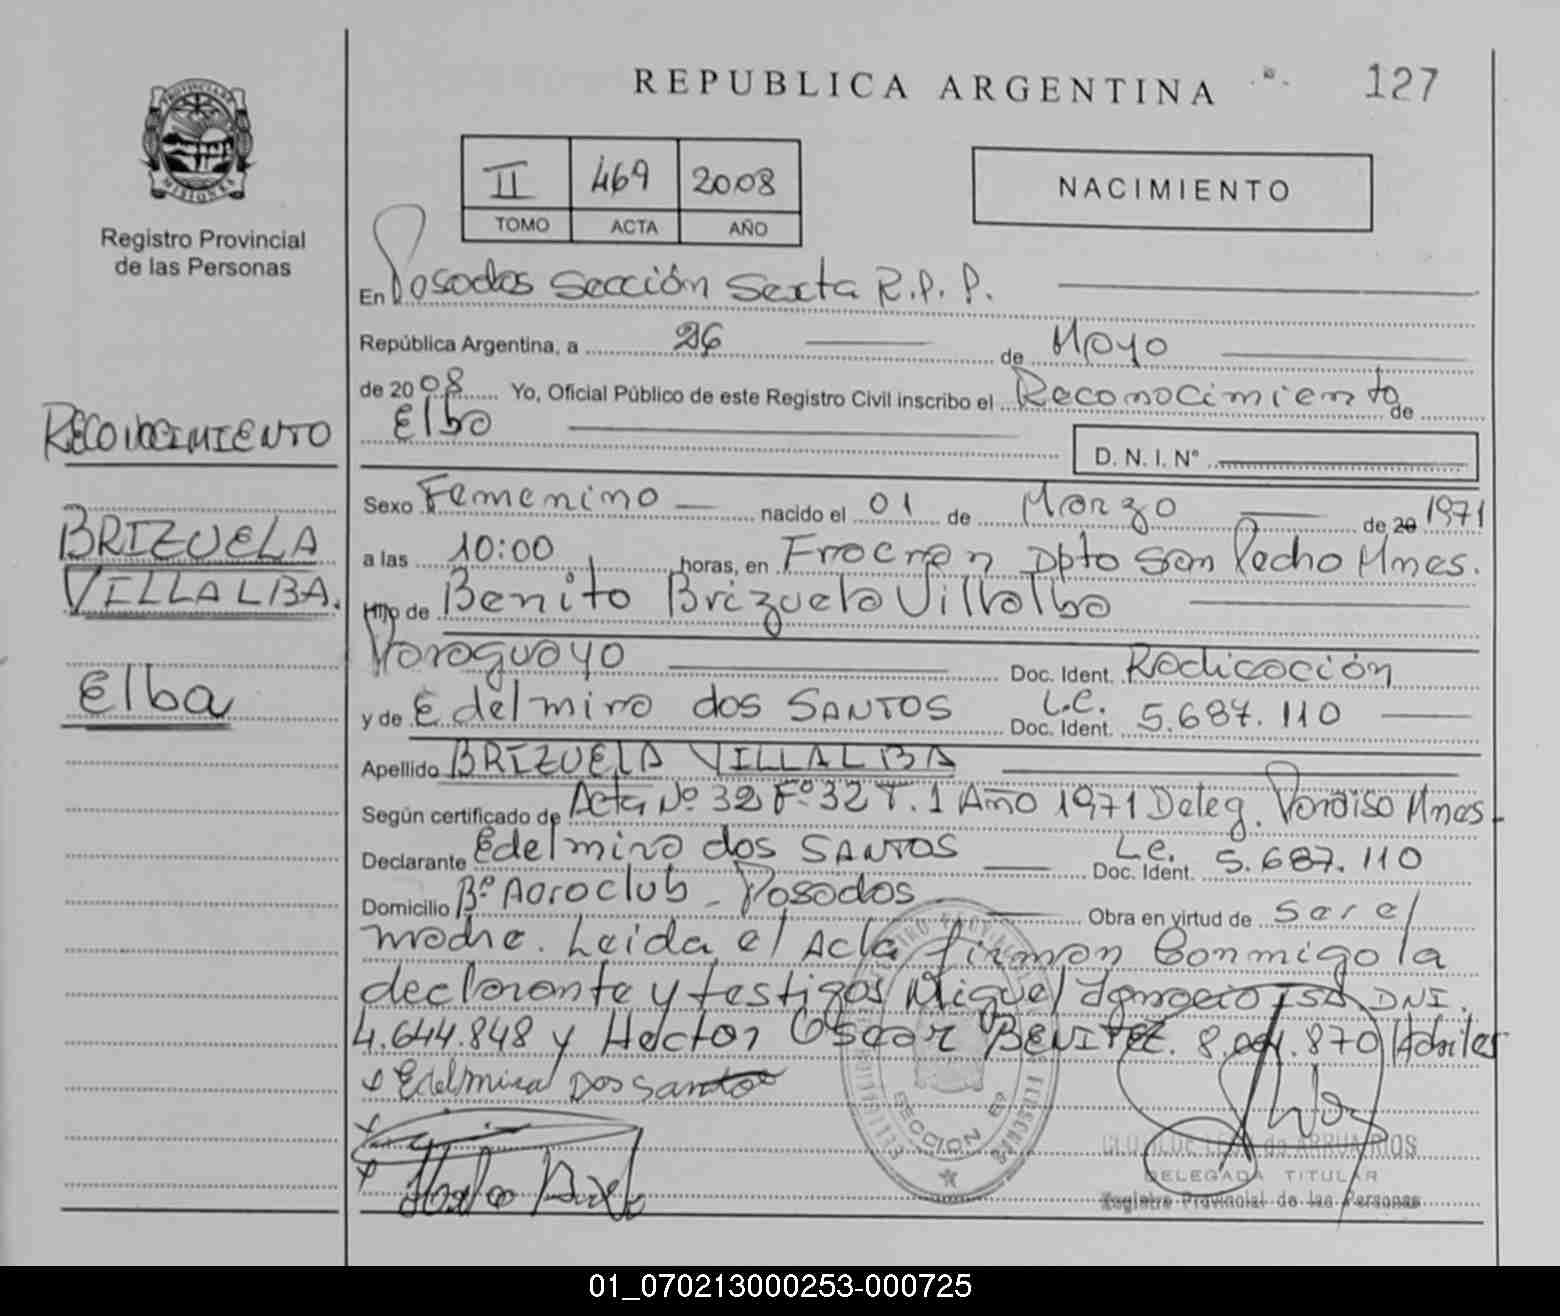 REPUBLICA ARGENTINA
127
PROVINCIA DE
MISIONES
Registro Provincial
de las Personas
II 469 2008
TOMO ACTA AÑO
NACIMIENTO
En Posadas Sección Sexta R.P.P.
República Argentina, a 26 de Mayo
de 2008 Yo, Oficial Público de este Registro Civil inscribo el Reconocimiento de
Elba
D. N. I. N°
RECONOCIMIENTO
BRIZUELA
VILLALBA.
Elba
Sexo Femenino nacido el 01 de Marzo de 20 1971
a las 10:00 horas, en Fracran Dpto San Pedro Mnes.
Hijo de Benito Brizuela Villalba
Paraguayo Doc. Ident. Radicación
y de Edelmira dos SANTOS L.C. Doc. Ident. 5.687.110
Apellido BRIZUELA VILLALBA
Según certificado de Acta Nº 32 Fº 32 T. 1 Año 1971 Deleg. Paraiso Mnes.
Declarante Edelmira dos SANTOS L.C. Doc. Ident. 5.687.110
Domicilio Bº Aeroclub - Posadas Obra en virtud de ser el
madre. Leida el Acta firman Conmigo la
declarante y testigos Miguel Ignacio DNI.
4.644.848 y Hector Oscar BENITEZ. 8. .870 Habiles
x Edelmira Dos Santos
SECCION 6ª
de ARRUABARRIOS
DELEGADA TITULAR
Registro Provincial de las Personas
01_070213000253-000725